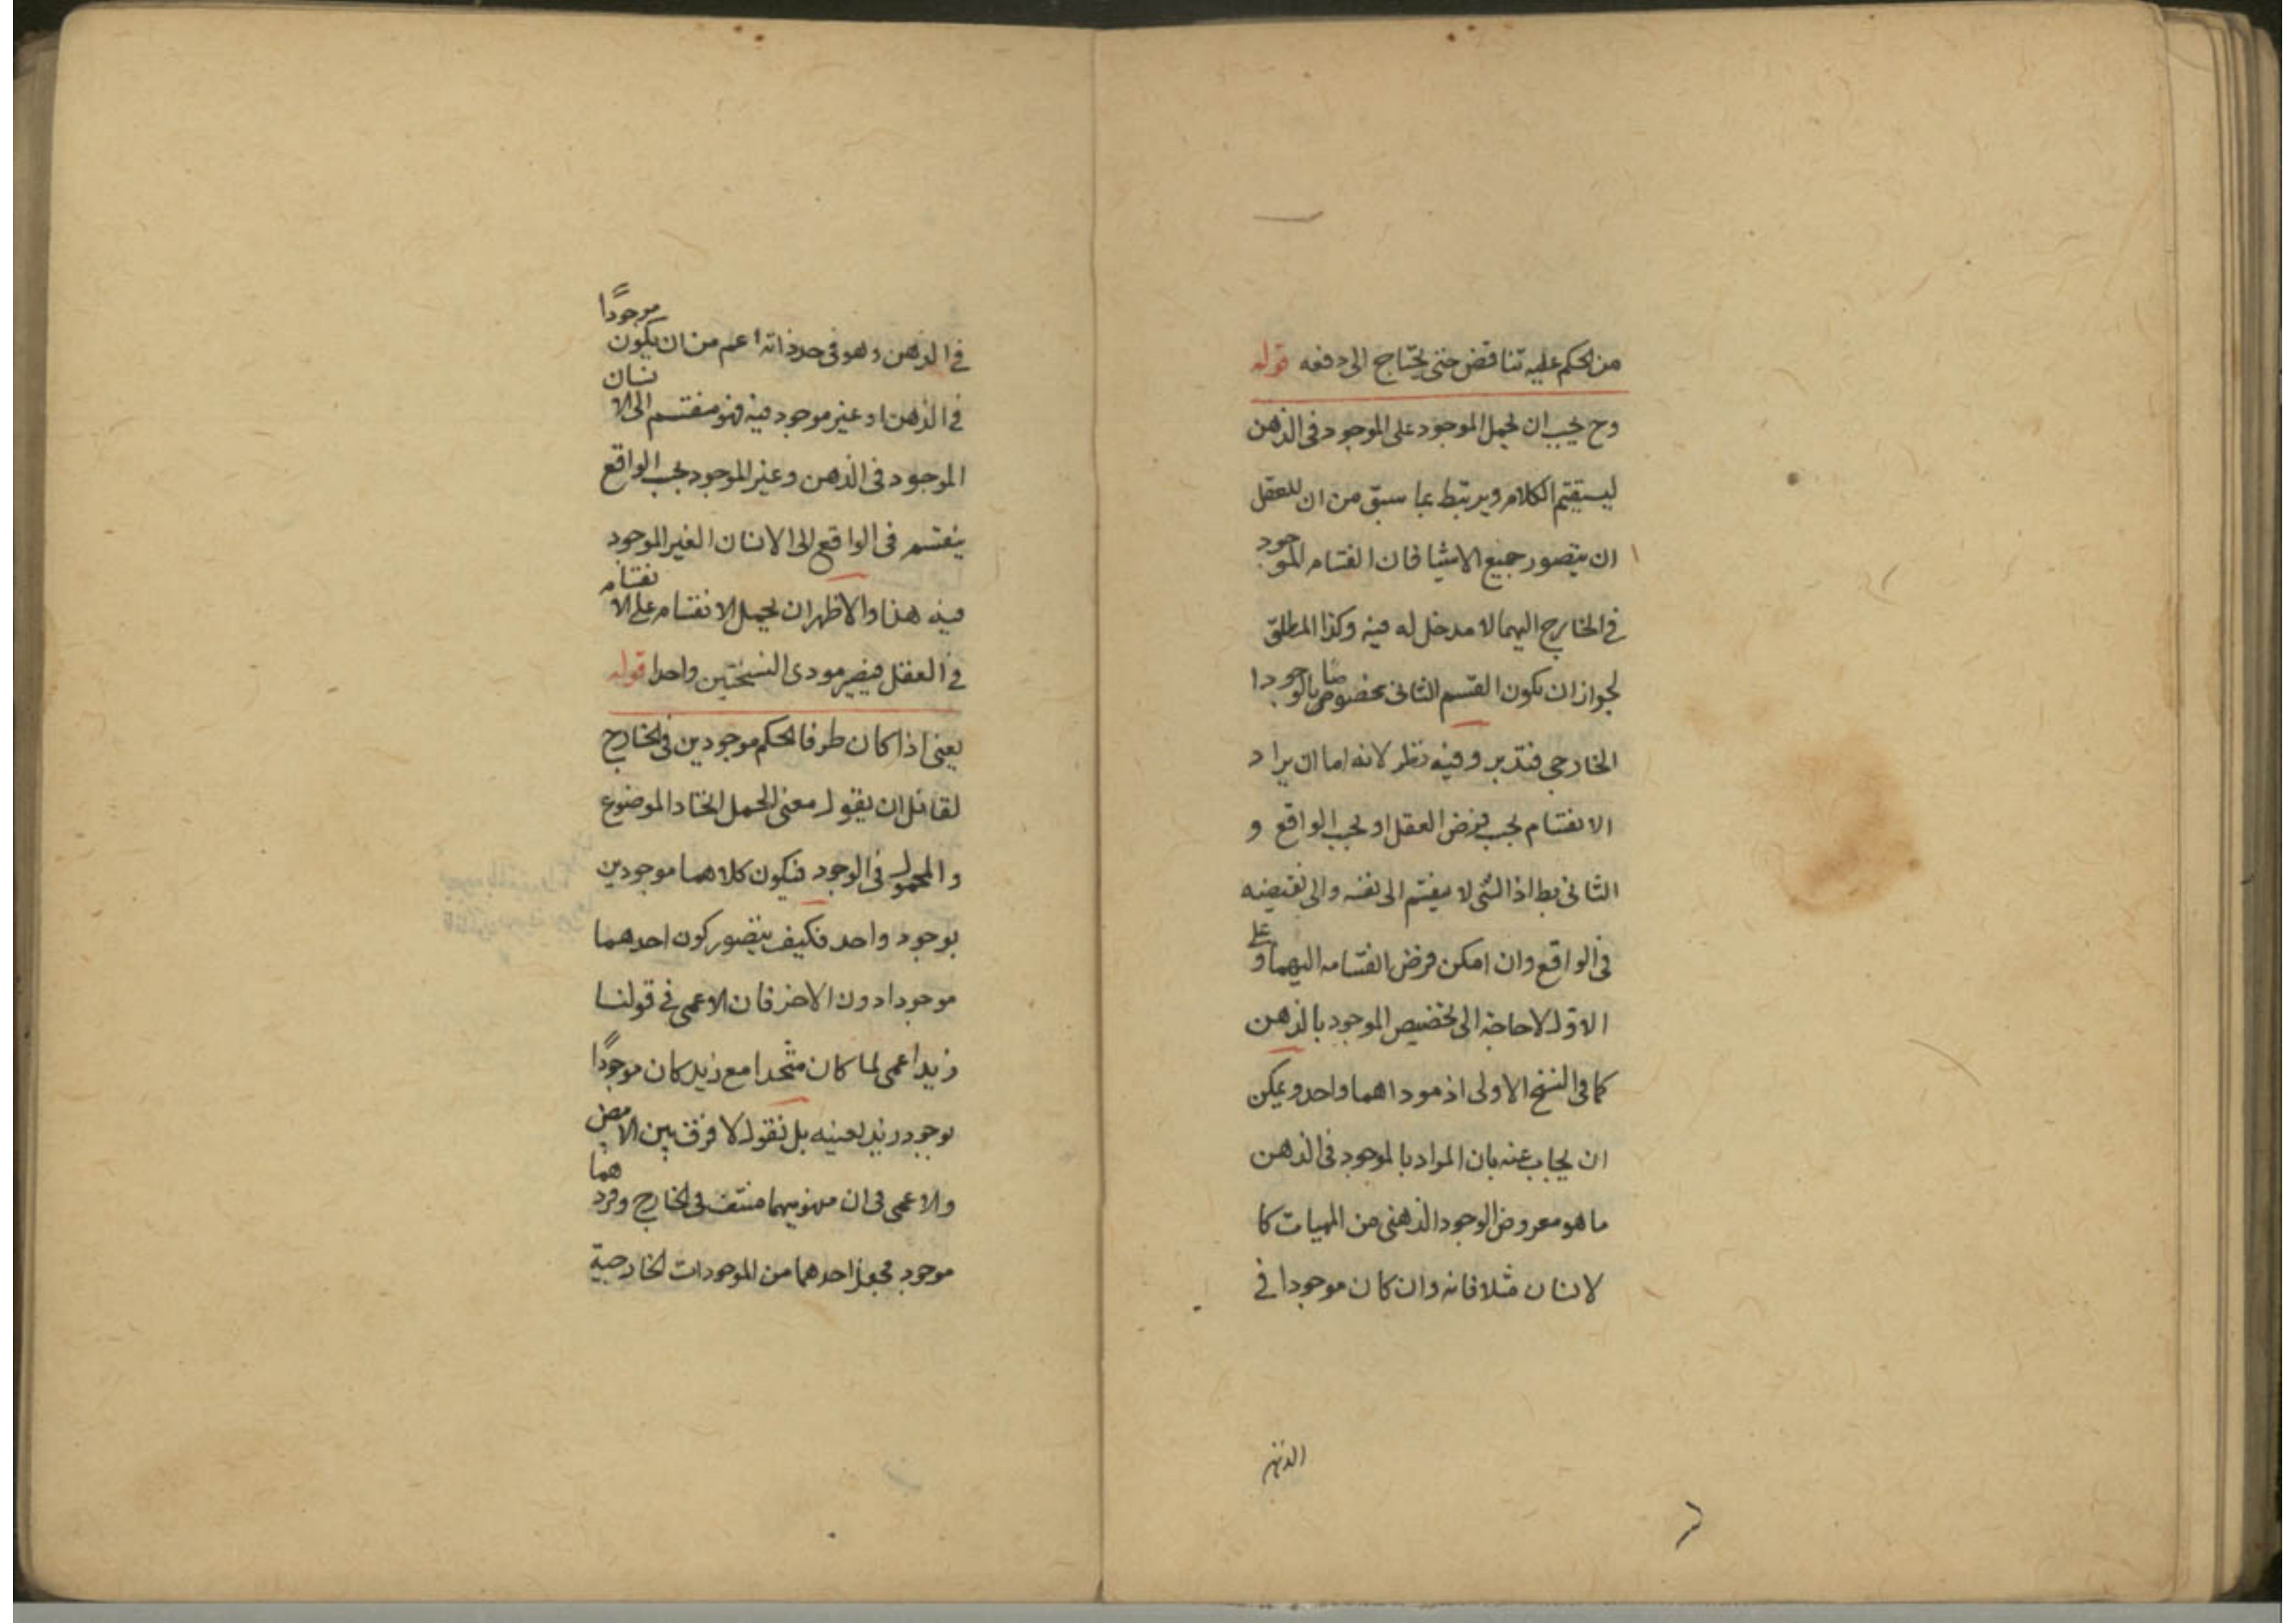 من الحكم عليه تناقض حتى يحتاج الى دفعه قوله
وح يجب ان يحمل الموجود على الموجود فى الذهن
ليستقيم الكلام ويرتبط بما سبق من ان للعقل
ان يتصور جميع الاشيا فان انقسام الموجود
فى الخارج اليهما لا مدخل له فيه وكذا المطلق
لجواز ان يكون القسم الثانى مخصوصا بالوجود
الخارجى فتدبر وفيه نظر لانه اما ان يراد
الانقسام بحسب فرض العقل او بحسب الواقع و
الثانى بط اذ الشى لا ينقسم الى نفسه والى نقيضه
فى الواقع وان امكن فرض انقسامه اليهما وعلى
الاول لا حاجة الى تخصيص الموجود بالذهن
كما فى النسخ الاولى اذ موداهما واحد ويمكن
ان يجاب عنه بان المراد بالموجود فى الذهن
ما هو معروض الوجود الذهنى من المهيات كا
لانسان مثلا فانه وان كان موجودا فى
الذهن
فى الذهن وهو فى حد ذاته اعم من ان يكون موجودًا
فى الذهن او غير موجود فيه فهو منقسم الى الانسان
الموجود فى الذهن وغير الموجود بحسب الواقع
ينقسم فى الواقع الى الانسان الغير الموجود
فيه هذا والاظهر ان يحمل الانقسام على الانقسام
فى العقل فيصير مودى النسختين واحدا قوله
يعنى اذا كان طرفا الحكم موجودين فى الخارج
لقائل ان يقول معنى الحمل اتحاد الموضوع
والمحمول فى الوجود فيكون كلاهما موجودين
بوجود واحد فكيف يتصور كون احدهما
موجودا دون الاخر فان الاعمى فى قولنا
زيد اعمى لما كان متحدا مع زيد كان موجودًا
بوجود زيد بعينه بل نقول لا فرق بين الابيض
والاعمى فى ان مفهوميهما منتف فى الخارج وفردهما
موجود فجعل احدهما من الموجودات الخارجية